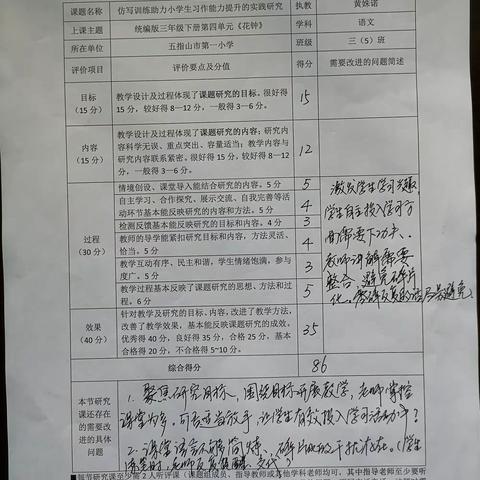 课题名称 仿写训练助力小学生习作能力提升的实践研究 执教 黄姝诺
上课主题 统编版三年级下册第四单元《花钟》 学科 语文
所在单位 五指山市第一小学 班级 三（5）班
评价项目 评价要点及分值 得分 需要改进的问题简述
目标
（15分）
教学设计及过程体现了课题研究的目标。很好得
15分，较好得8—12分，一般得3—6分。
15
内容
（15分）
教学设计及过程体现了课题研究的内容；研究内
容科学无误、重点突出、容量适当；教学内容与
研究内容联系紧密。很好得15分，较好得8—12
分，一般得3—6分。
12
过程
（30分）
情境创设、课堂导入能结合研究的内容。5分 5
自主学习、合作探究、展示交流、自我完善等活
动环节基本能反映研究的内容和方法。5分 4
检测反馈基本能反映研究的目标和内容。4分 3
教师的导学能紧扣研究目标和内容，方法灵活、
恰当。5分 4
教学互动有序、民主和谐，学生情绪饱满，参与
度广。5分 3
教学过程基本反映了课题研究的思想、方法和过
程。6分 5
激发学生学习兴趣，
学生自主投入学习方
面需要下功夫、
教师讲解需要
整合，避免碎片
化，
效果
（40分）
针对教学及研究的目标、内容，改进了教学方法，
改善了教学效果，基本能反映课题研究的成效。
优秀得40分，良好得35分，合格25分，基本
合格得20分，不合格得5~10分。
35
综合得分 86
本节研究
课还存在
的需要改
进的具体
问题
1. 聚焦研究目标，围绕目标开展教学，老师掌控
课堂为多，可否适当放手，让学生有效投入学习活动中？
2. 课堂语言不够简炼、
■每节研究课至少需2人听评课（课题组成员、指导教师或其他学科老师均可，其中指导老师至少要听